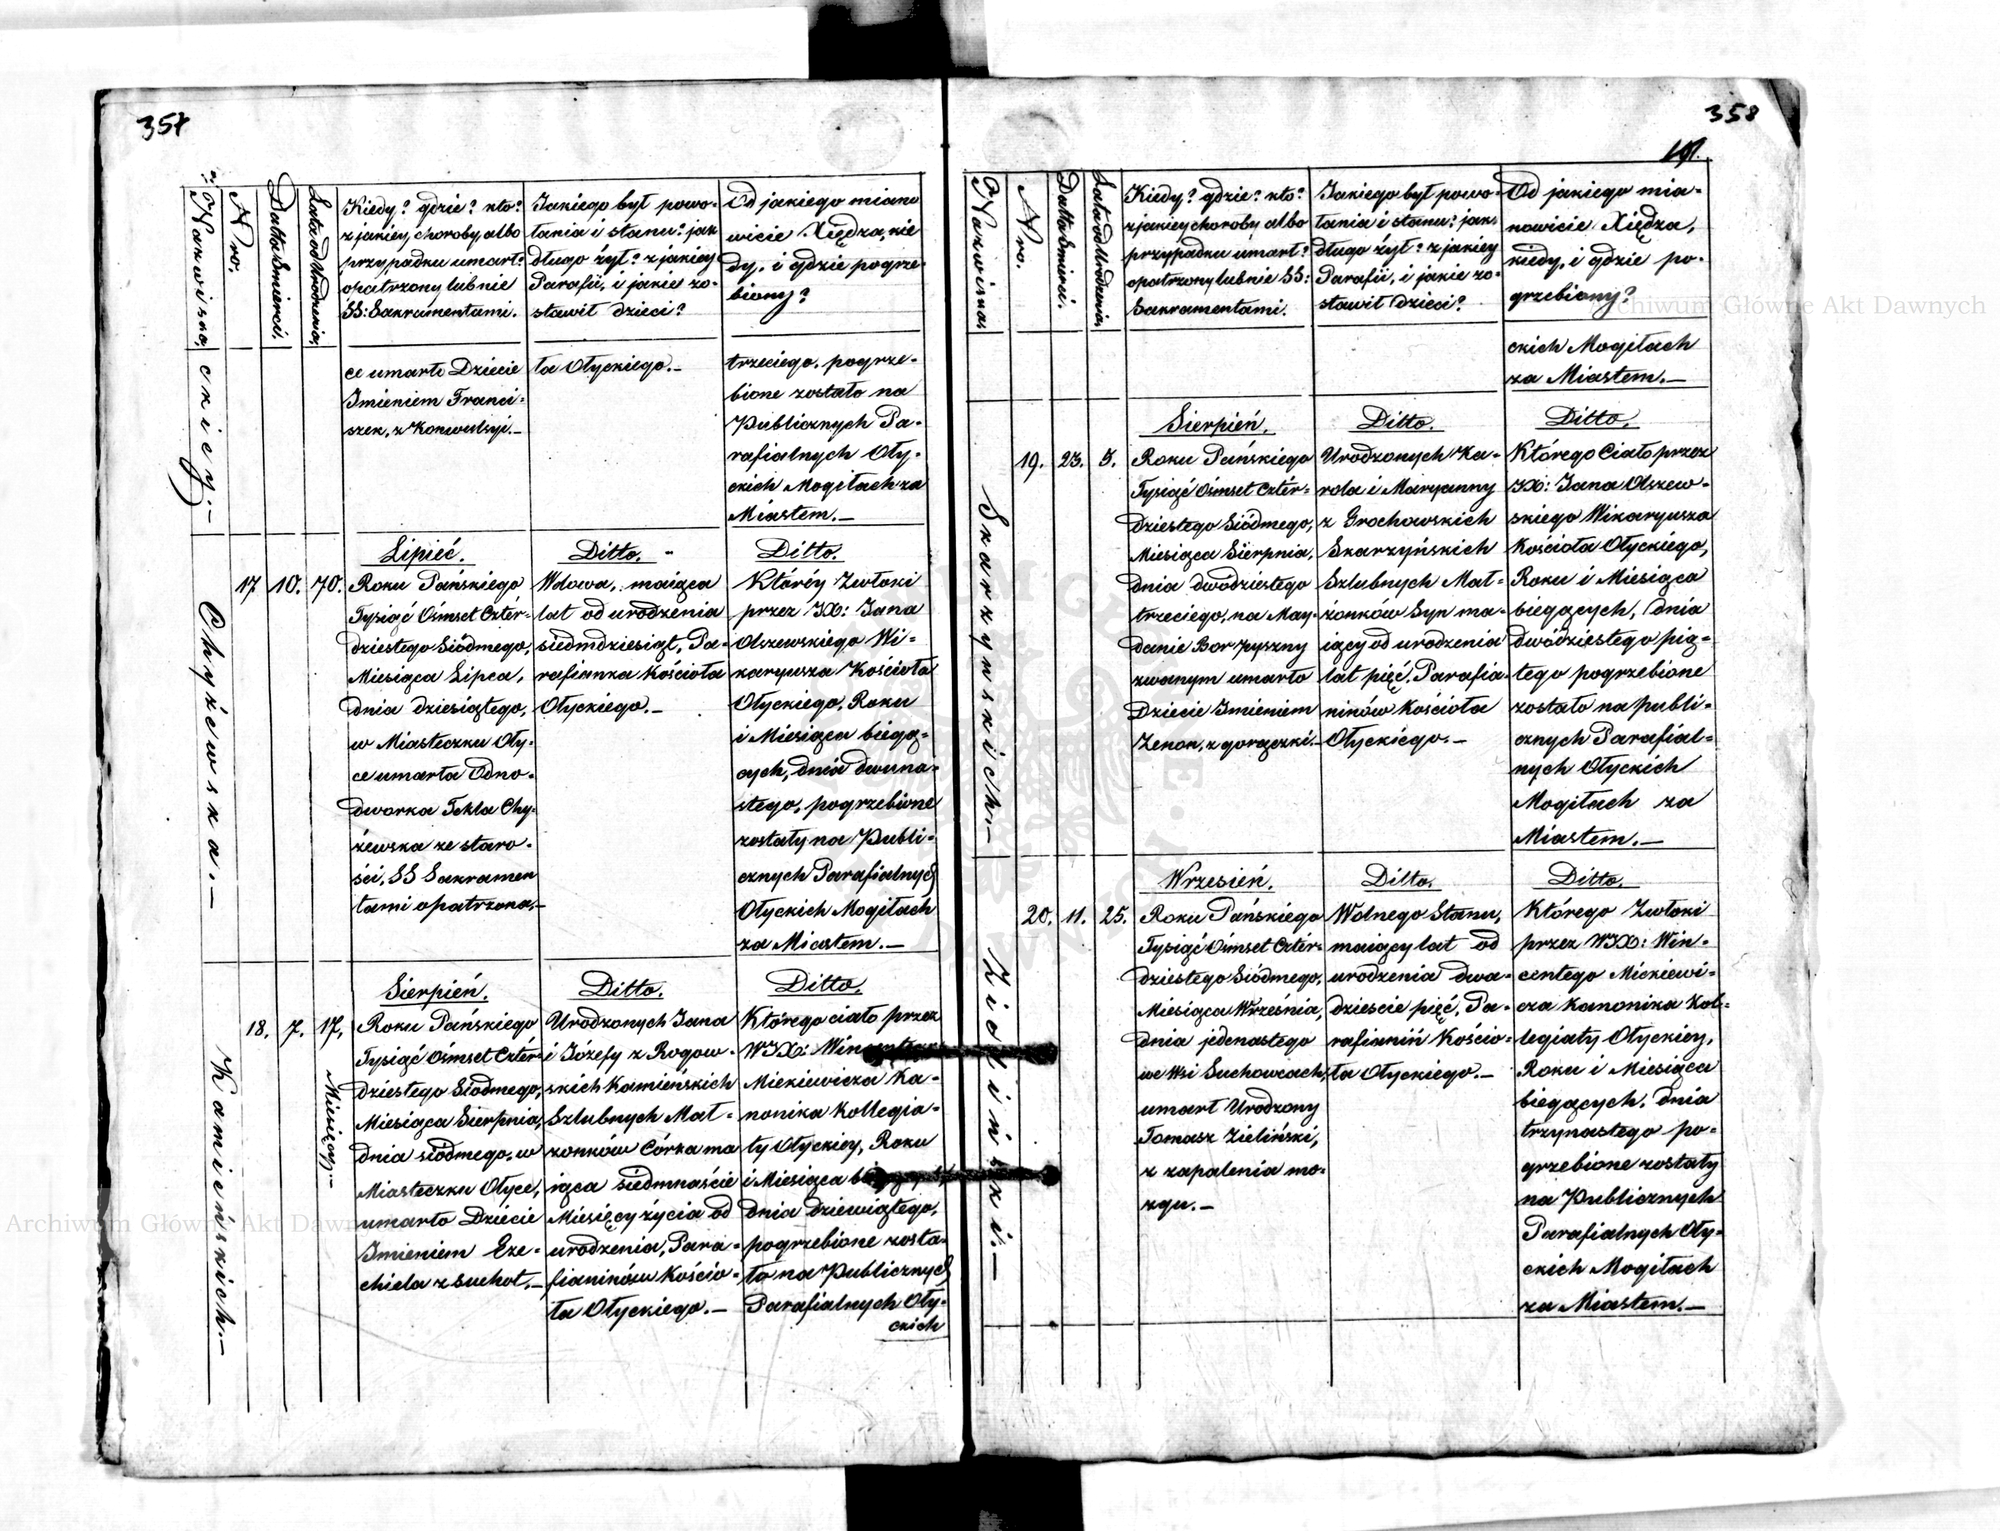 357
Nazwiska.
Nro.
Datta Śmierci.
Lata od Urodzenia.
Kiedy? gdzie? kto?
z jakiey choroby albo
przypadku umarł?
opatrzony lub nie
SS: Sakramentami.
Jakiego był powo-
łania i stanu? jak
długo żył? z jakiey
Parafii, i jakie zo-
stawił dzieci?
Od jakiego miano
wicie Xiędza, kie
dy, i gdzie pogrze-
biony?
ckiey.-
ce umarło Dziecie
Imieniem Franci-
szek, z Konwulsyi.-
ła Ołyckiego.-
trzeciego, pogrze-
bione zostało na
Publicznych Pa-
rafialnych Oły-
ckich Mogiłach za
Miastem.-
Chyżewska.-
17
10.
70.
Lipieć.
Roku Pańskiego
Tysiąć Ośmset Cztér-
dziestego Siódmego,
Miesiąca Lipca,
dnia dziesiątego,
w Miasteczku Oły-
ce umarła Odno-
dworka Tekla Chy-
żewska ze staro-
ści, SS Sakramen
tami opatrzona.-
Ditto.
Wdowa, maiąca
lat od urodzenia
siedmdziesiąt, Pa-
rafianka Kościoła
Ołyckiego.-
Ditto.
Któréy Zwłoki
przez JX: Jana
Olszewskiego Wi-
karyusza Kościoła
Ołyckiego, Roku
i Miesiąca biegą-
cych, dnia dwuna-
stego, pogrzebione
zostały na Publi-
cznych Parafialnych
Ołyckich Mogiłach
za Miastem.-
Kamieńskich.-
18.
7.
17.
Miesięcy.-
Sierpień.
Roku Pańskiego
Tysiąć Ośmset Cztér-
dziestego Siódmego,
Miesiąca Sierpnia,
dnia siódmego, w
Miasteczku Ołyce,
umarło Dziecie
Imieniem Eze-
chiela z Suchot.-
Ditto.
Urodzonych Jana
i Józefy z Rogow-
skich Kamieńskich
Szlubnych Mał-
żonków Córka ma
iąca siedmnaście
Miesięcy życia od
urodzenia, Para-
fianinów Kościo-
ła Ołyckiego.-
Ditto.
Którego ciało przez
WJX: Wincentego
Mickiewicza Ka-
nonika Kollegia-
ty Ołyckiey, Roku
i Miesiąca
dnia dziewiątego,
pogrzebione zosta-
ło na Publicznych
Parafialnych Oły-
ckich
358
191.
Nazwiska
Nro.
Datta Śmierci.
Lata od Urodzenia
Kiedy? gdzie? kto?
z jakiey choroby albo
przypadku umarł?
opatrzony lub nie SS:
Sakramentami.
Jakiego był powo-
łania i stanu? jak
długo żył? z jakiey
Parafii, i jakie zo-
stawił dzieci?
Od jakiego mia-
nowicie Xiędza,
kiedy, i gdzie po-
grzebiony?
ckich Mogiłach
za Miastem.-
Skarzynskich.-
19.
23.
5.
Sierpień.
Roku Pańskiego
Tysiąć Ośmset Cztér-
dziestego Siódmego,
Miesiąca Sierpnia,
dnia dwódziestego
trzeciego, na May-
danie Bor
zwanym umarło
Dziecie Imieniem
Zenon, z gorączki.-
Ditto.
Urodzonych Ka-
rola i Maryanny
z Grochowskich
Skarzyńskich
Szlubnych Mał-
żonków Syn ma-
iący od urodzenia
lat pięć, Parafia-
ninów Kościoła
Ołyckiego.-
Ditto.
Którego Ciało przez
JX: Jana Olszew-
skiego Wikaryusza
Kościoła Ołyckiego,
Roku i Miesiąca
biegących, dnia
dwódziestego pią-
tego pogrzebione
zostało na publi-
cznych Parafial-
nych Ołyckich
Mogiłach za
Miastem.-
Zielinski.-
20.
11.
25.
Wrzesień.
Roku Pańskiego
Tysiąć Ośmset Cztér-
dziestego Siódmego,
Miesiąca Września,
dnia jedenastego
we Wsi Suchowcach,
umarł Urodzony
Tomasz Zieliński,
z zapalenia mo-
zgu.-
Ditto.
Wolnego Stanu,
maiący lat od
urodzenia dwa-
dzieście pięć, Pa-
rafianin Kościo-
ła Ołyckiego.-
Ditto.
Którego Zwłoki
przez WJX: Win-
centego Mickiewi-
cza Kanonika Kol-
legiaty Ołyckiey,
Roku i Miesiąca
biegących, dnia
trzynastego po-
grzebione zostały
na Publicznych
Parafialnych Oły-
ckich Mogiłach
za Miastem.-
Archiwum Główne Akt Dawnych
Archiwum Główne Akt Dawnych